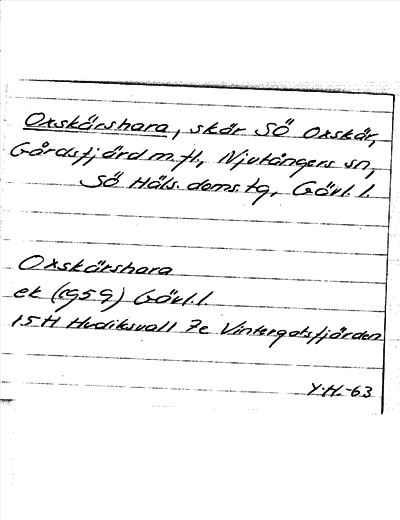 Oxskärshara, skär SÖ Oxskär,
Gårdsfjärd m.fl., Njutångers sn,
SÖ Häls. doms.tg, Gävl. l.
Oxskärshara
ek (1959) Gävl. l
15H Hudiksvall 7e Vintergatsfjärden
Y.H.-63